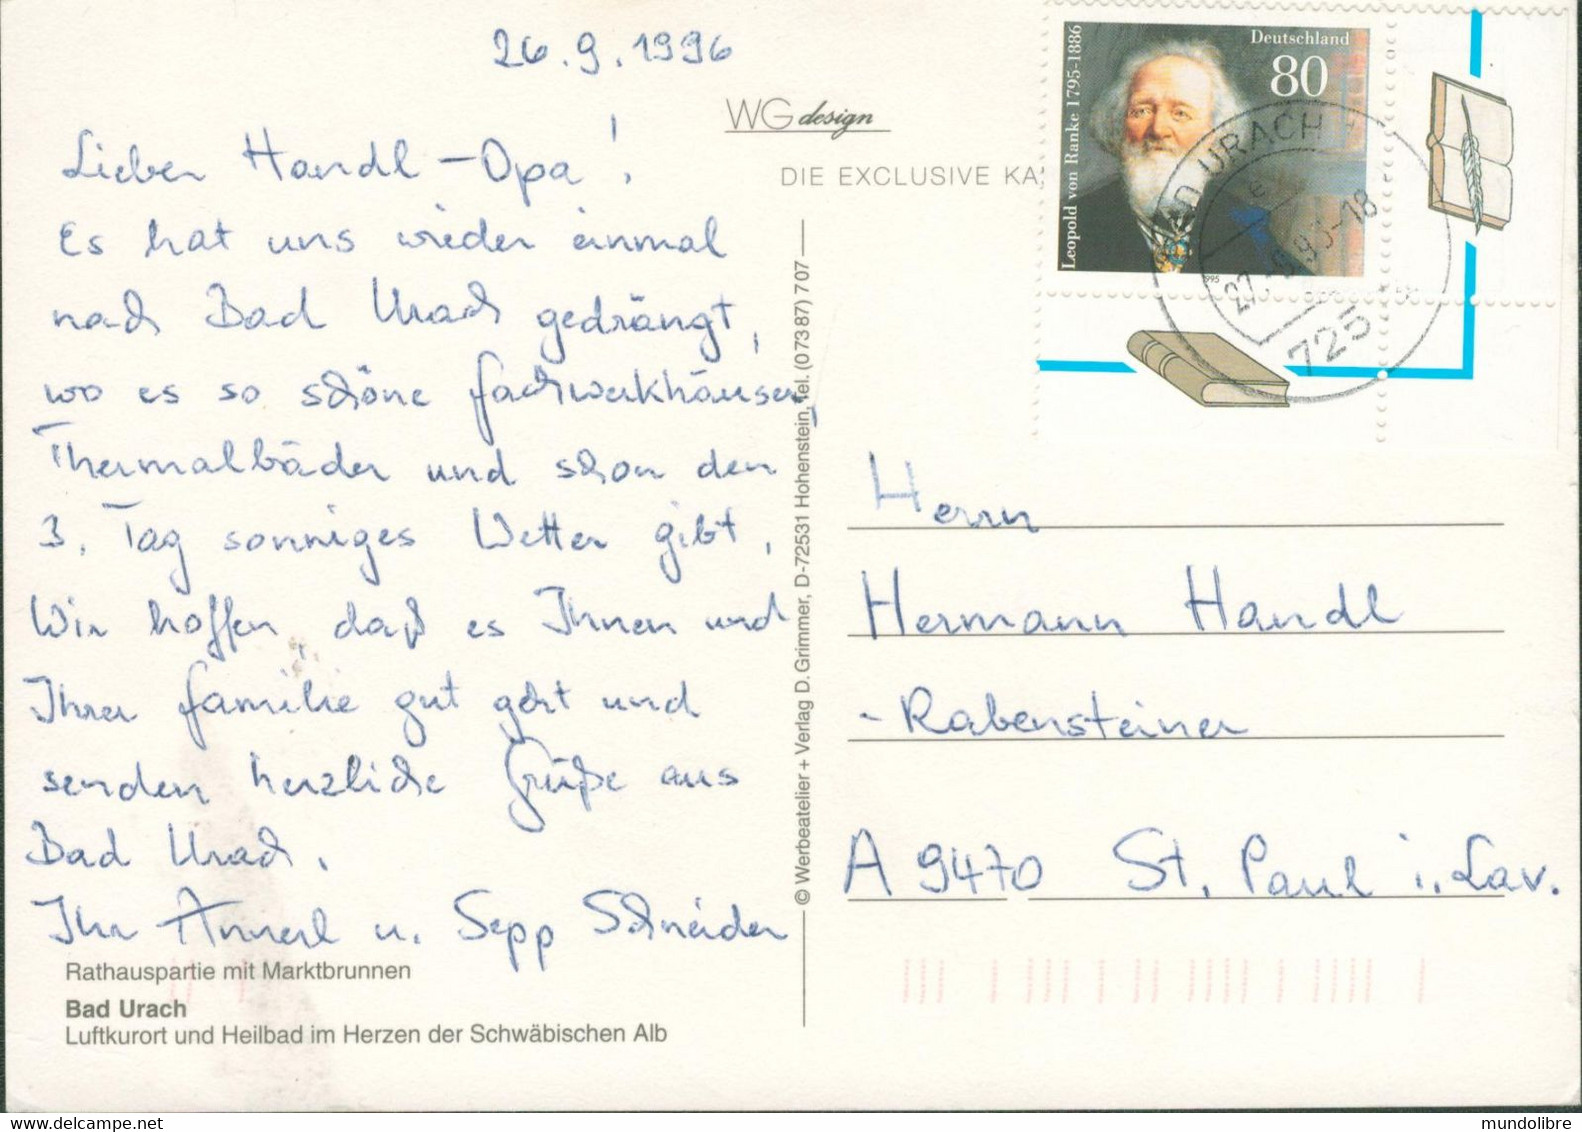 26.9.1996
Lieber Handl-Opa!
Es hat uns wieder einmal
nach Bad Urach gedrängt,
wo es so schöne Fachwerkhäuser,
Thermalbäder und schon den
3. Tag sonniges Wetter gibt.
Wir hoffen, daß es Ihnen und
Ihrer Familie gut geht und
senden herzliche Grüße aus
Bad Urach.
Ihr Annerl u. Sepp Schneider
Rathauspartie mit Marktbrunnen
Bad Urach
Luftkurort und Heilbad im Herzen der Schwäbischen Alb
WG design
DIE EXCLUSIVE KA
© Werbeatelier + Verlag D. Grimmer, D-72531 Hohenstein, Tel. (0 73 87) 7 07
Deutschland
80
Leopold von Ranke 1795-1886
BAD URACH
e
725
Herrn
Hermann Handl
-Rabensteiner
A 9470 St. Paul i. Lav.
mundolibre